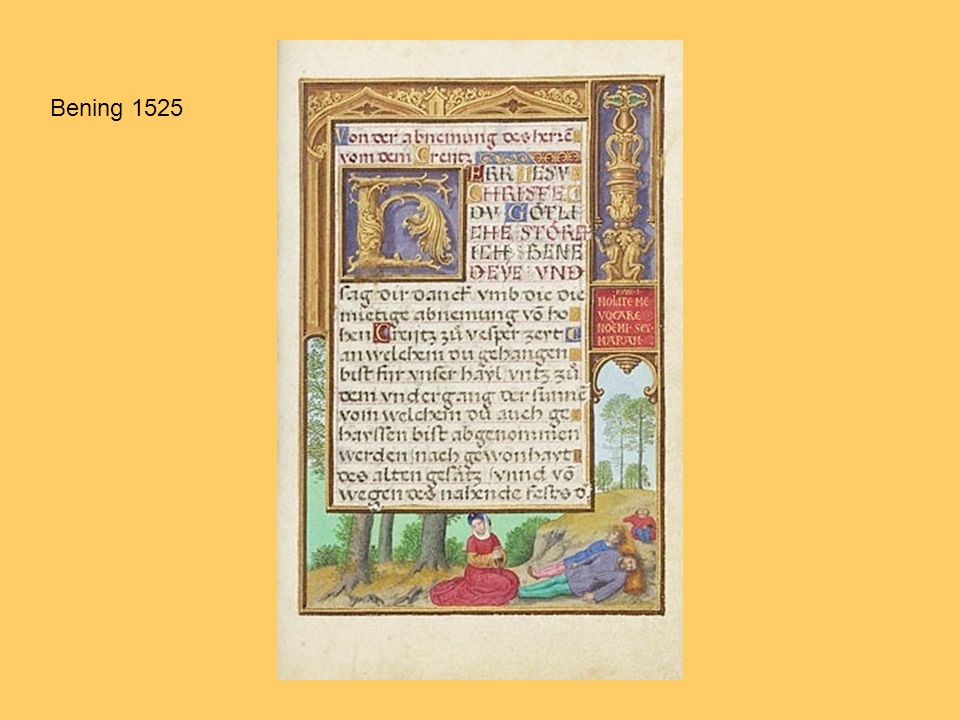 Bening 1525
Von der abnemung des herrē
vom dem Creütz
HERR IESV
CHRISTE
DV GÖTLI
CHE STÖRCK
ICH BENE
DEYE VND
sag dir danck vmb die die
mietige abnemung vō ho
hen Creütz zů vesper zeyt
an welchem du gehangen
bist für vnser hayl vntz zů
dem vndergang der sunnē
vom welchem du auch ge
hayssen bist abgenommen
werden nach gewonhayt
des alten gesätz vnnd vō
wegen des nahende fests
NOLITE ME
VOCARE
NOEMI SET
MARAM